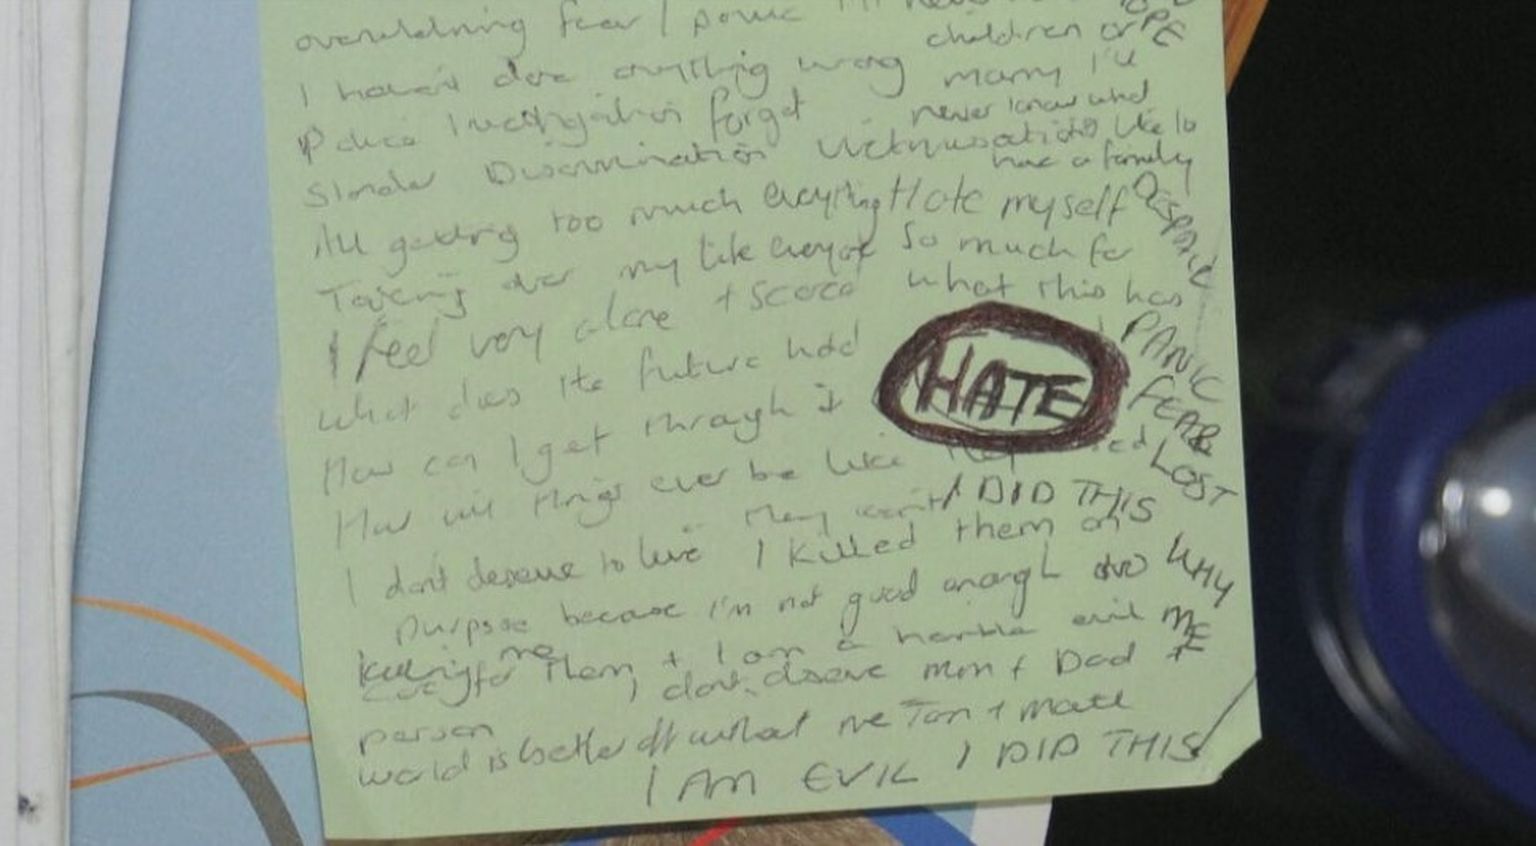 overwhelming fear / panic I'll never
HOPE
children or
I haven't done anything wrong marry I'll
Police Investigation forget never know what
Slander Discrimination Victimisation its like to
have a family
All getting too much everything I Hate myself DESPAIR
Taking over my life everyone so much for
I feel very alone + scared what this has
PANIC
what does the future hold
HATE
FEAR
How can I get through it
LOST
How will things ever be like they
I DID THIS
I don't deserve to live I killed them on
WHY
purpose because I'm not good enough to
ME
caring for them + I am a horrible evil
person I don't deserve mum + Dad +
world is better off without me Tom + Matt
I AM EVIL I DID THIS